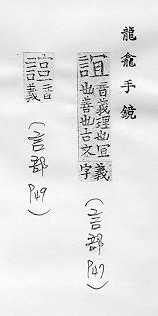 龍龕手鏡
誼 音義理也宜
也善也古文
義字
(言部
P47)
𧩙 音
義
(言部
P49)